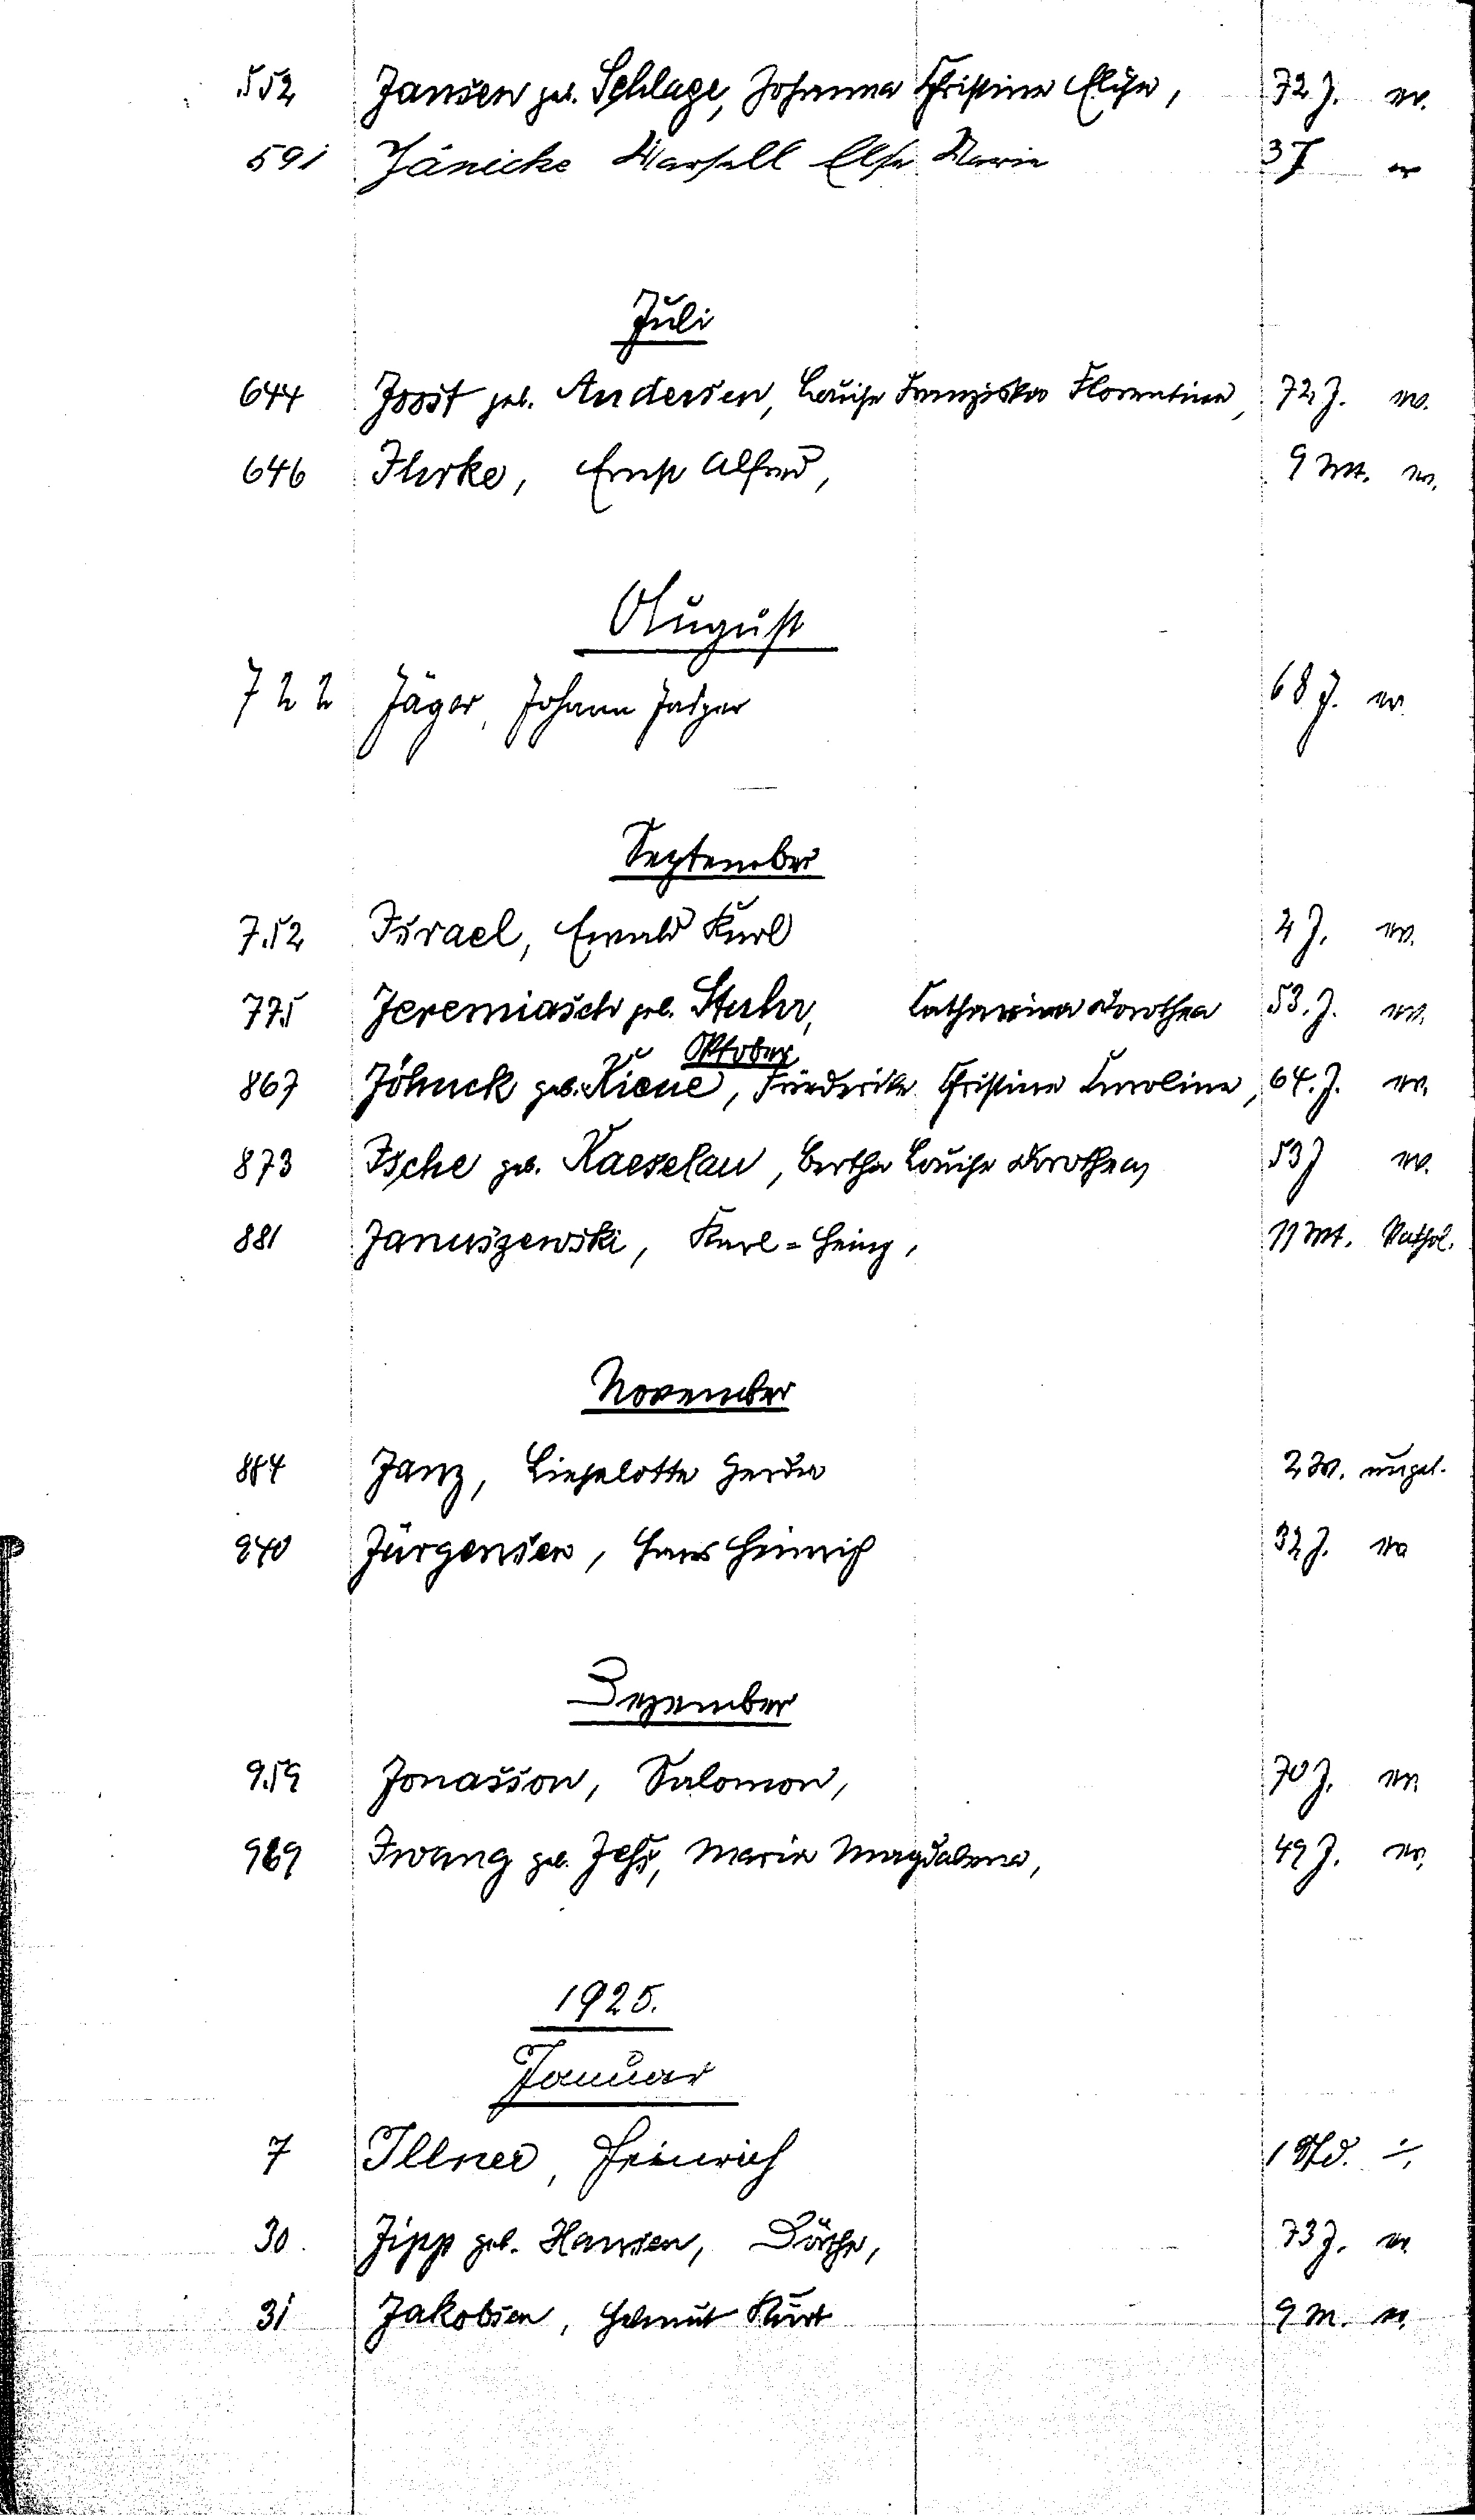 552 Jansen geb. Schlage, Johanna Christine Elise, 72 J. ev.
591 Jänicke Marsell Else Marie 37 ev
Juli
644 Joost geb. Andersen, Louise Franziska Florentine, 72 J. ev.
646 Ihrke, Ernst Alfred, 9 Mt. ev.
August
722 Jäger, Johann Jasper 68 J. ev.
September
752 Israel, Ewald Karl 2 J. ev.
775 Jeremiasch geb. Stuhr, Catharina Dorothea 53. J. ev.
Oktober
867 Jöhnck geb. Kiene, Friederike Christine Caroline, 64. J. ev.
873 Ische geb. Kaeselau, Bertha Louise Dorothea, 53 J ev.
881 Januszewski, Karl=Heinz, 11 Mt. Kathol.
November
884 Janz, Lieselotte Gerda 2 W. unget.
940 Jürgensen, Hans Heinrich 32 J. ev
Dezember
959 Jonasson, Salomon, 70 J. ev.
969 Iwang geb. Jess, Maria Magdalena, 49 J. ev.
1925.
Januar
7 Illner, Heinrich 1 Std. ÷.
30. Jipp geb. Hansen, Dörthe, 73 J. ev.
31 Jakobsen, Helmut Kurt 9 M. ev.